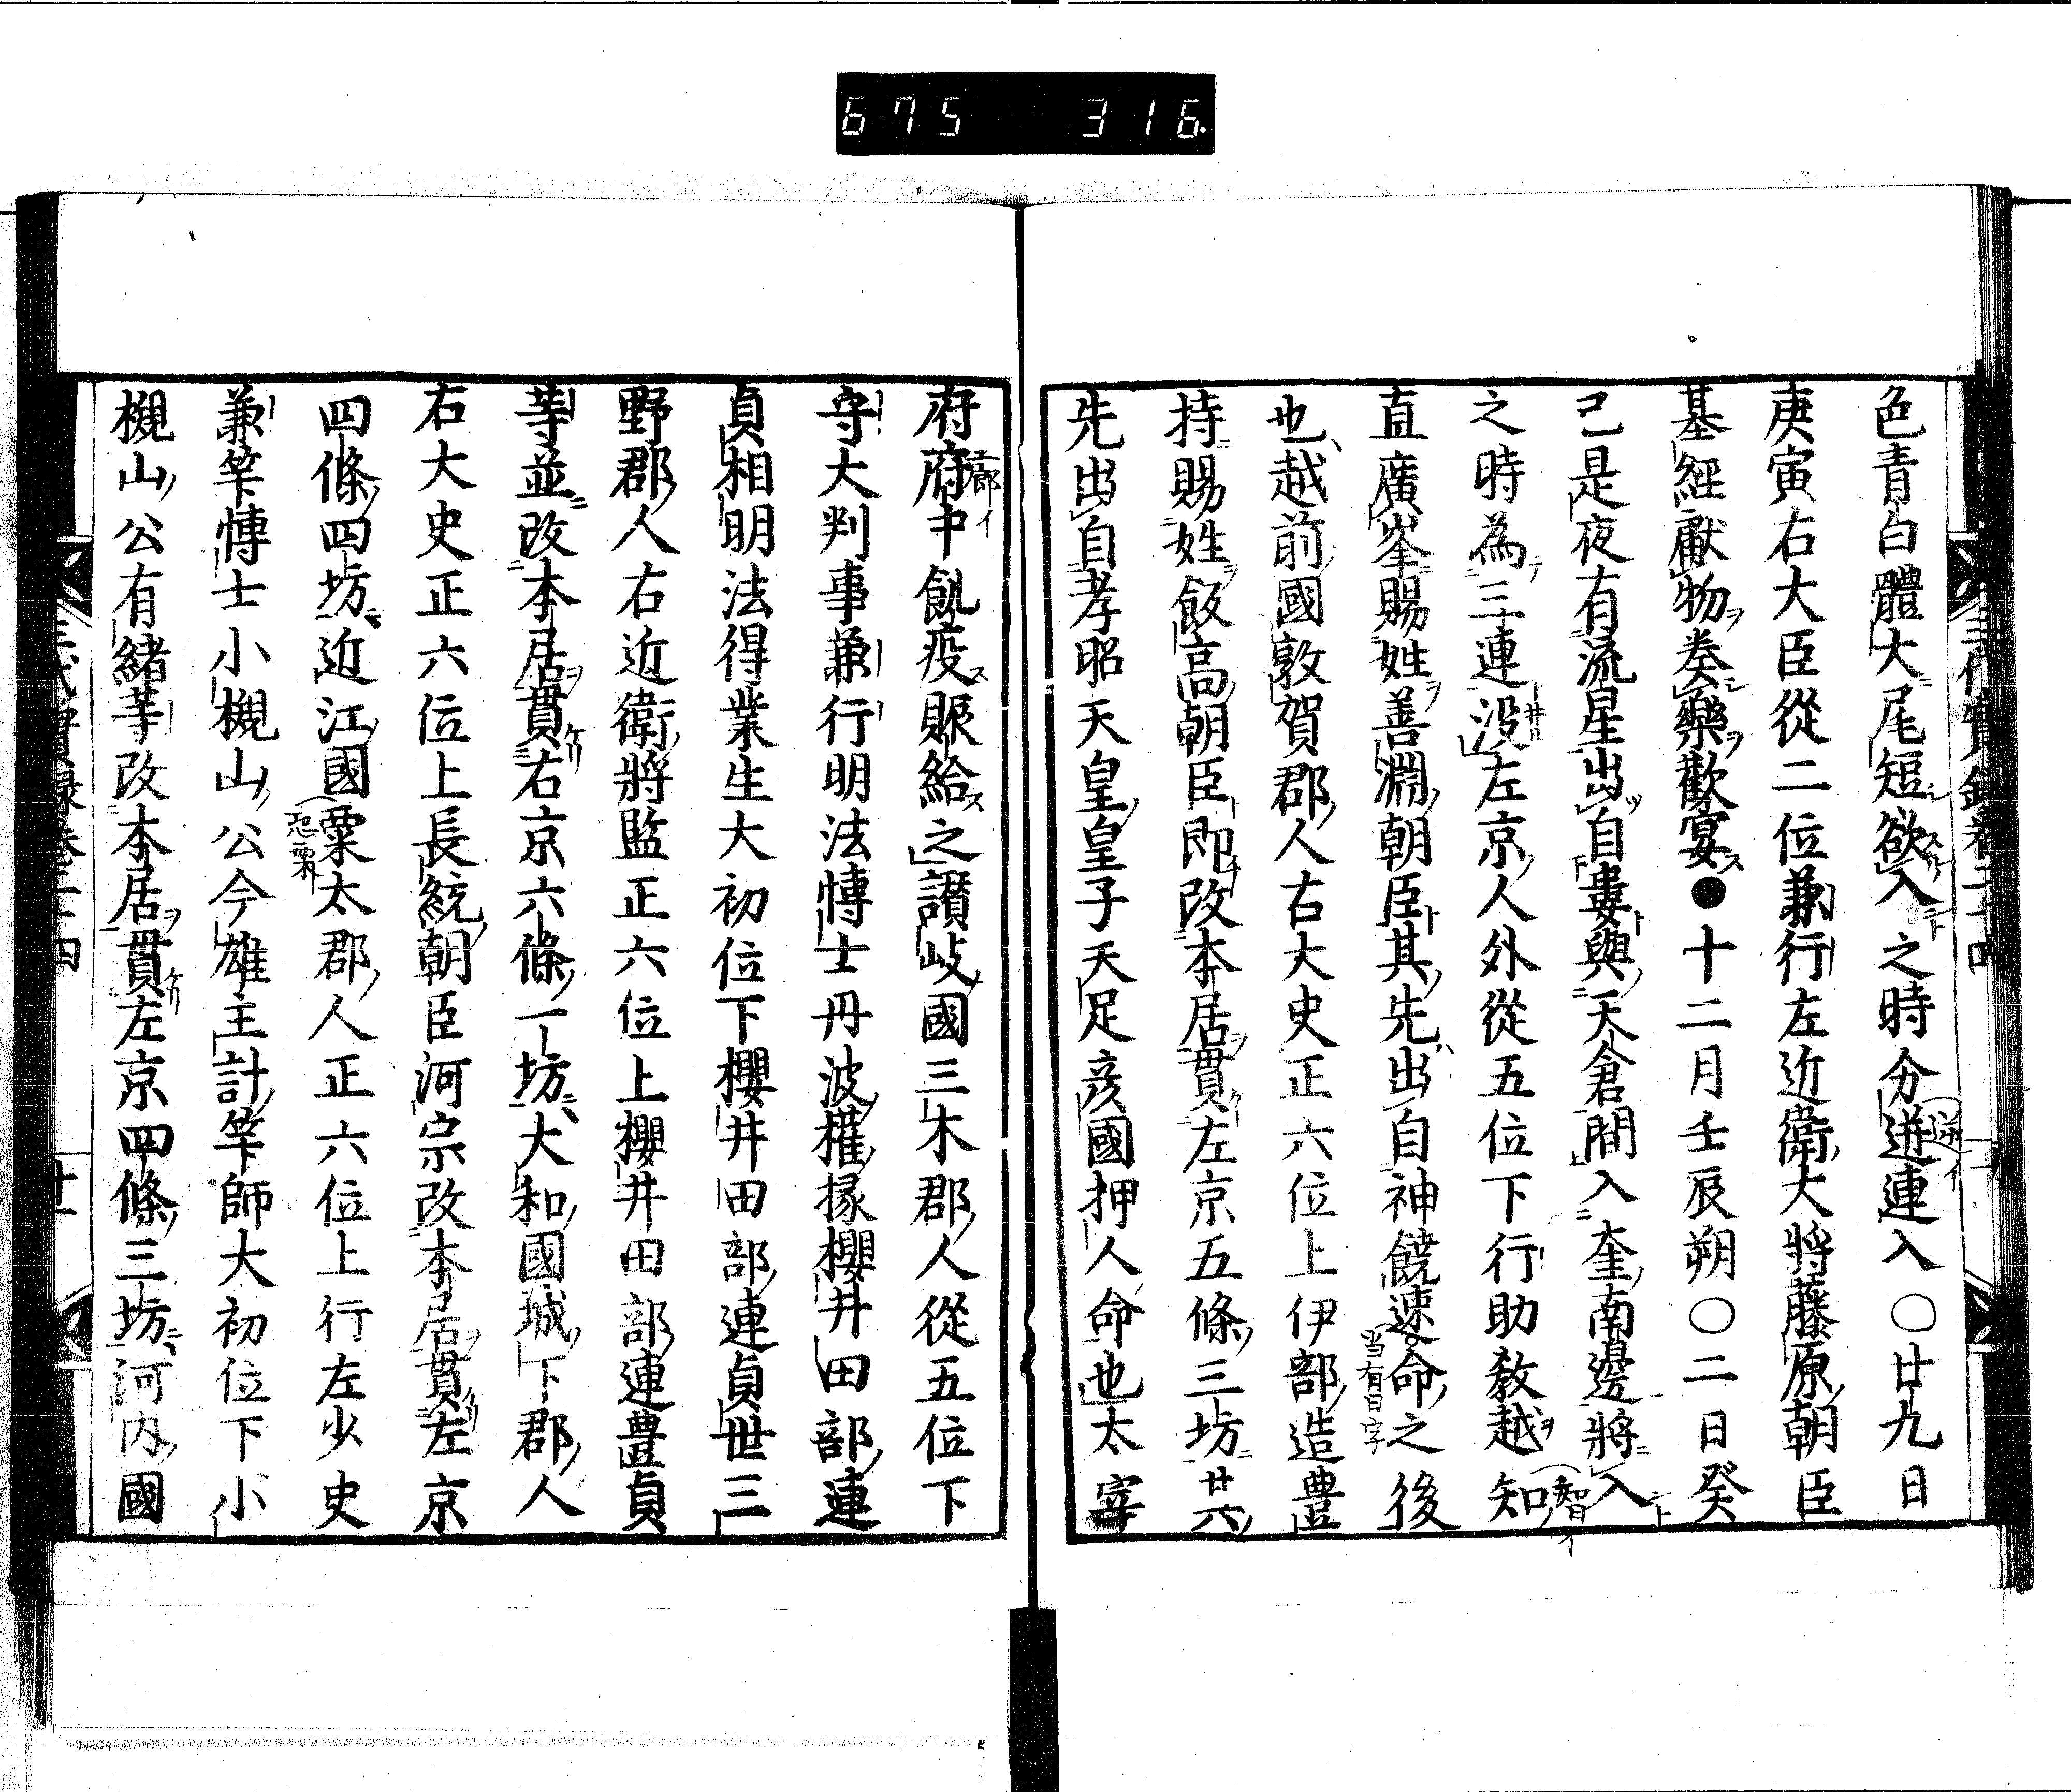 675 316.
色青白體大尾短欲入之時分迸連入○廿九日
庚寅右大臣從二位兼行左近衛大將藤原朝臣
基經獻物奏樂歡宴●十二月壬辰朔○二日癸
己是夜有流星出自婁與天倉間入奎南邊將入
之時為三連沒左京人外從五位下行助教越知
直廣峯賜姓善淵朝臣其先出自神饒速命之後
也越前國敦賀郡人右大史正六位上伊部造豊
持賜姓飯高朝臣即改本居貫左京五條三坊其
先出自孝昭天皇皇子天足彦國押人命也太宰
府府中飢疫賑給之讃岐國三木郡人從五位下
守大判事兼行明法慱士丹波權掾櫻井田部連
貞相明法得業生大初位下櫻井田部連貞世三
野郡人右近衛將監正六位上櫻井田部連豊貞
等並改本居貫右京六條一坊大和國城下郡人
右大史正六位上長統朝臣河宗改本居貫左京
四條四坊近江國粟太郡人正六位上行左少史
兼竿慱士小槻山公今雄主計竿師大初位下小
槻山公有緒等改本居貫左京四條三坊河内國